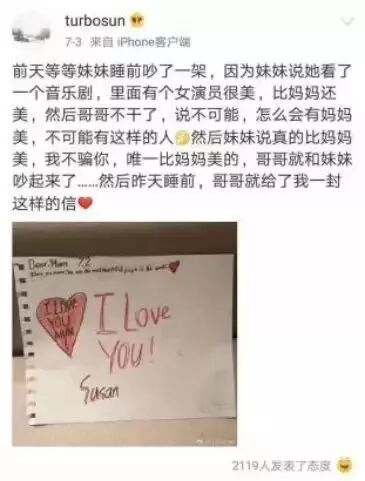 turbosun
7-3 来自 iPhone客户端
前天等等妹妹睡前吵了一架，因为妹妹说她看了
一个音乐剧，里面有个女演员很美，比妈妈还
美，然后哥哥不干了，说不可能，怎么会有妈妈
美，不可能有这样的人🌛然后妹妹说真的比妈妈
美，我不骗你，唯一比妈妈美的，哥哥就和妹妹
吵起来了……然后昨天睡前，哥哥就给了我一封
这样的信❤️
Dear Mum 7.2
I LOVE
YOU
MUM
I Love
YOU!
Susan
2119人发表了态度